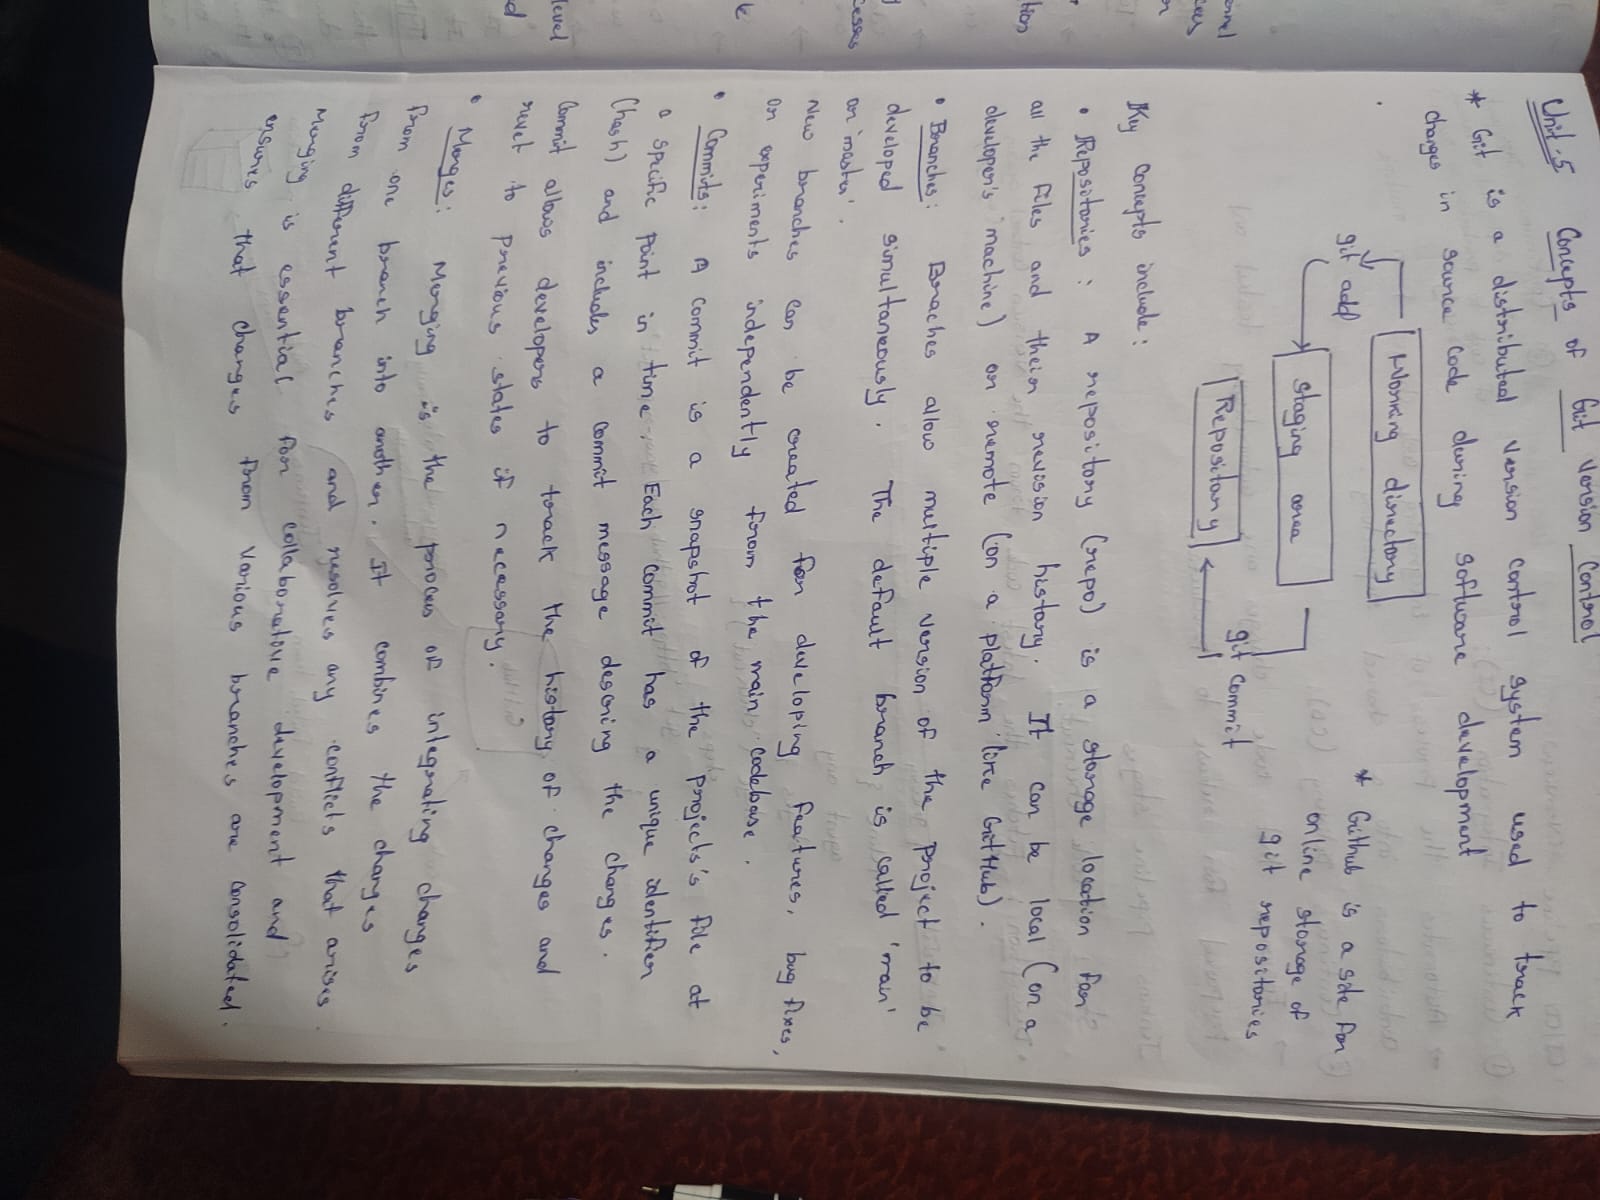 Unit-5 Concepts of Git Version Control
* Git is a distributed version control system used to track
changes in source code during software development
Working directory
git add
staging area
git commit
Repositary
* Github is a site for
online storage of
git repositories
Key Concepts include:
• Repositories : A repository (repo) is a storage location for
all the files and their revision history. It can be local (on a
developer's machine) or remote (on a platform like GitHub).
• Branches: Braches allow multiple version of the project to be
developed simultaneously. The default branch is called 'main'
or 'master'.
New branches can be created for developing features, bug fixes,
or experiments independently from the main codebase.
• Commits: A commit is a snapshot of the projects's file at
a specific point in time. Each commit has a unique identifier
(hash) and includes a commit message descring the changes.
Commit allows developers to track the history of changes and
revet to previous states if necessary.
• Merges: Merging is the process of integrating changes
from one branch into another. It combines the changes
from different branches and resolves any conflicts that arises.
Merging is essential for collaborative development and
ensures that changes from various branches are consolidated.